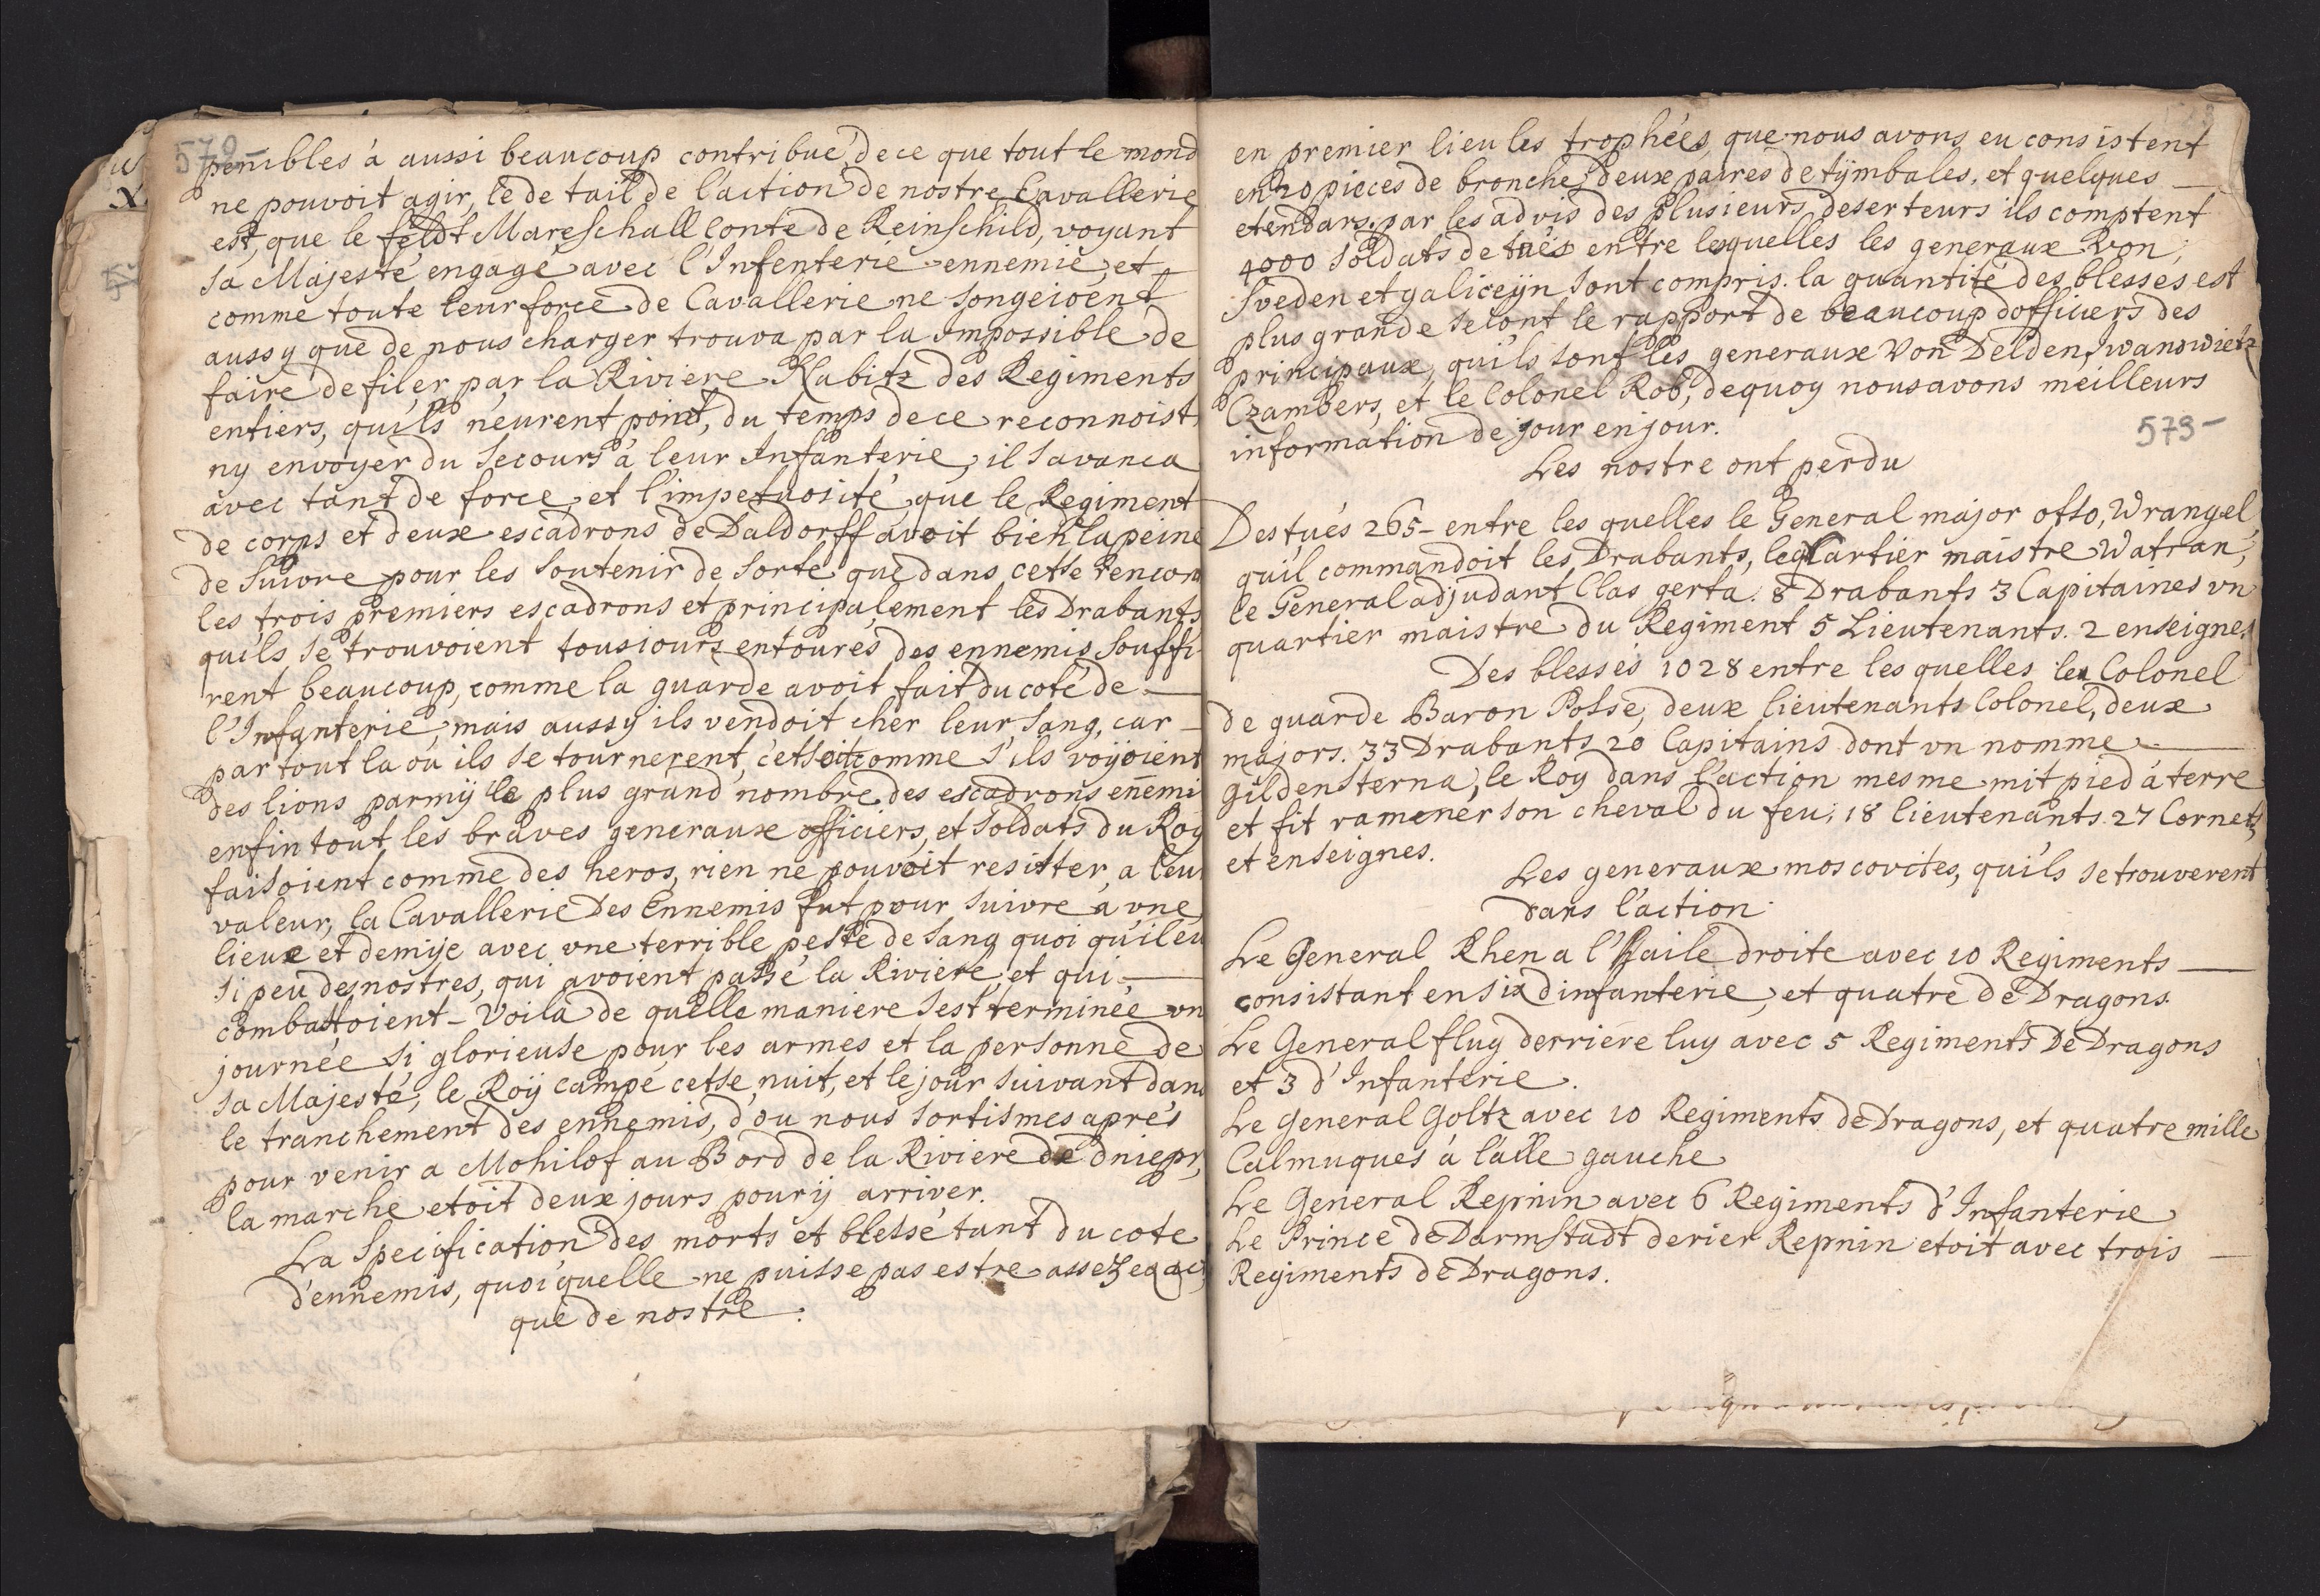 570
penibles à aussi beaucoup contribué, de ce que tout le mond
ne pouvoit agir, le de tail de l'action de nostre Cavallerie
est, que le feldt Mareschall Conte de Reinschild, voyant
sa Majesté engagé avec l'Infenterie ennemie, et
comme toute leur force de Cavallerie ne songeioent
aussy que de nous charger trouva par la Impossible de
faire defiler par la Riviere Kabitz des Regiments
entiers, qu'ils n'eurent point, du temps de ce reconnoist,
ny envoyer du secours à leur Infanterie, il s'avanca
avec tant de force et l'impetuosité que le Regiment
de corps et deux escadrons de Daldorff avoit bien la peine
de suivre pour les soutenir de sorte que dans cette rencon
les trois premiers escadrons et principalement les Drabants
quils se trouvoient tousiours entourés des ennemis souffi-
rent beaucoup, comme la guarde avoit fait du coté de
l'Infanterie, mais aussy ils vendoit cher leur sang, car
par tout la ou ils se tournerent, c'etsoit comme s'ils voyoient
des lions parmy le plus grand nombre des escadrons enemi
enfin tout les braves generaux officiers, et soldats du Roy
faisoient comme des heros, rien ne pouvoit resitter, a leur
valeur, la Cavallerie Des Ennemis fut pour suivre à une
lieux et demije avec une terrible peste de sang quoi qu'il eu
si peu des nostres, qui avoient passé la Riviere, et qui
combattoient – Voila de quelle maniere s'est terminée un
journée si glorieuse pour les armes et la personne de
sa Majesté, le Roy campé cette nuit, et le jour suivant dans
le tranchement des ennemis, d'ou nous sortismes aprés
pour venir a Mohilof au Bord de la Riviere de dniepr,
la marche etoit deux jours pour ij arriver.
La Specification des morts et blessé tant du cote
d'ennemis, quoi quelle ne puisse pas estre assez exact
que de nostre.
en premier lieu les trophées, que nous avons eu consistent
en 20 pieces de bronche, deux paires de tymbales, et quelques
etendars. par les advis des plusieurs deserteurs ils comptent
4000 soldats de tués entre lesquelles les generaux Von
Sveden et galiceijn sont compris. la quantité des blessés est
plus grande selont le rapport de beaucoup dofficiers des
principaux, quils sont les generaux Von Delden, wandwietz
Czambers, et le Colonel Rob, dequoy nous avons meilleurs
information de jour en jour.
573 –
Les nostre ont perdu
Des tués 265 – entre les quelles le General major otto, Wrangel,
quil commandoit les Drabants, le quartier maistre Watran,
le General adjudant Clas gerta. 8 Drabants 3 Capitaines un
quartier maistre du Regiment 5 Lieutenants. 2 enseignes
Des blessés 1028 entre les quelles le Colonel
de guarde Baron Posse, deux lieutenants Colonel, deux
majors. 33 Drabants 20 Capitains dont un nomme
gildensterna, le Roy dans l'action mesme mit pied à terre
et fit ramener son cheval du feu; 18 lieutenants 27 Cornets
et enseignes.
Les generaux moscovites, quils se trouverent
dans l'action.
Le General Rhen a l'haile droite avec 10 Regiments
consistant en six d'infanterie, et quatre de Dragons.
Le General flug derriere luy avec 5 Regiments De Dragons
et 3 d'Infanterie.
Le General Goltz avec 10 Regiments de Dragons, et quatre mille
Calmuques à l'aile gauche
Le General Repnin avec 6 Regiments d'Infanterie
Le Prince de Darmstadt derier Repnin etoit avec trois
Regiments de Dragons.